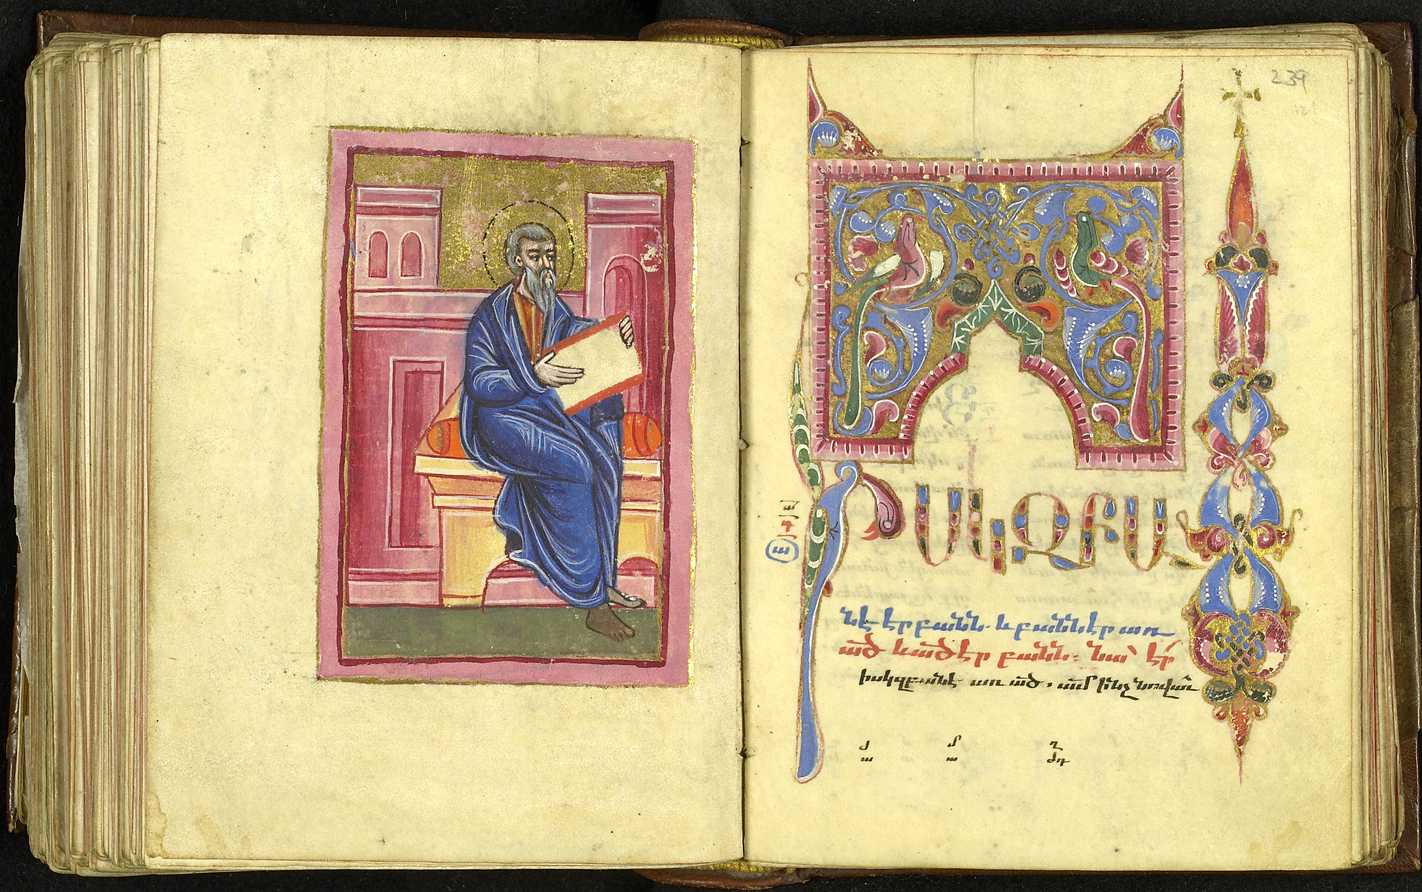 239
ԻՍԿԶԲԱ
նէ էր բանն. և բանն էր առ
ած և ած էր բանն. նա էր
իսկզբանէ առ ած. ամ ինչ նովաւ